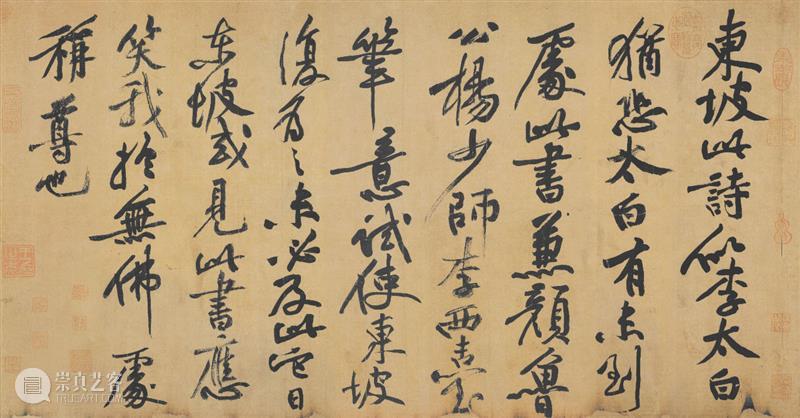 東坡此詩似李太白
猶恐太白有未到
處此書兼顏魯
公楊少師李西臺
筆意試使東坡
復為之未必及此它日
東坡或見此書應
笑我於無佛處
稱尊也
崇真艺客
TRUEART.COM